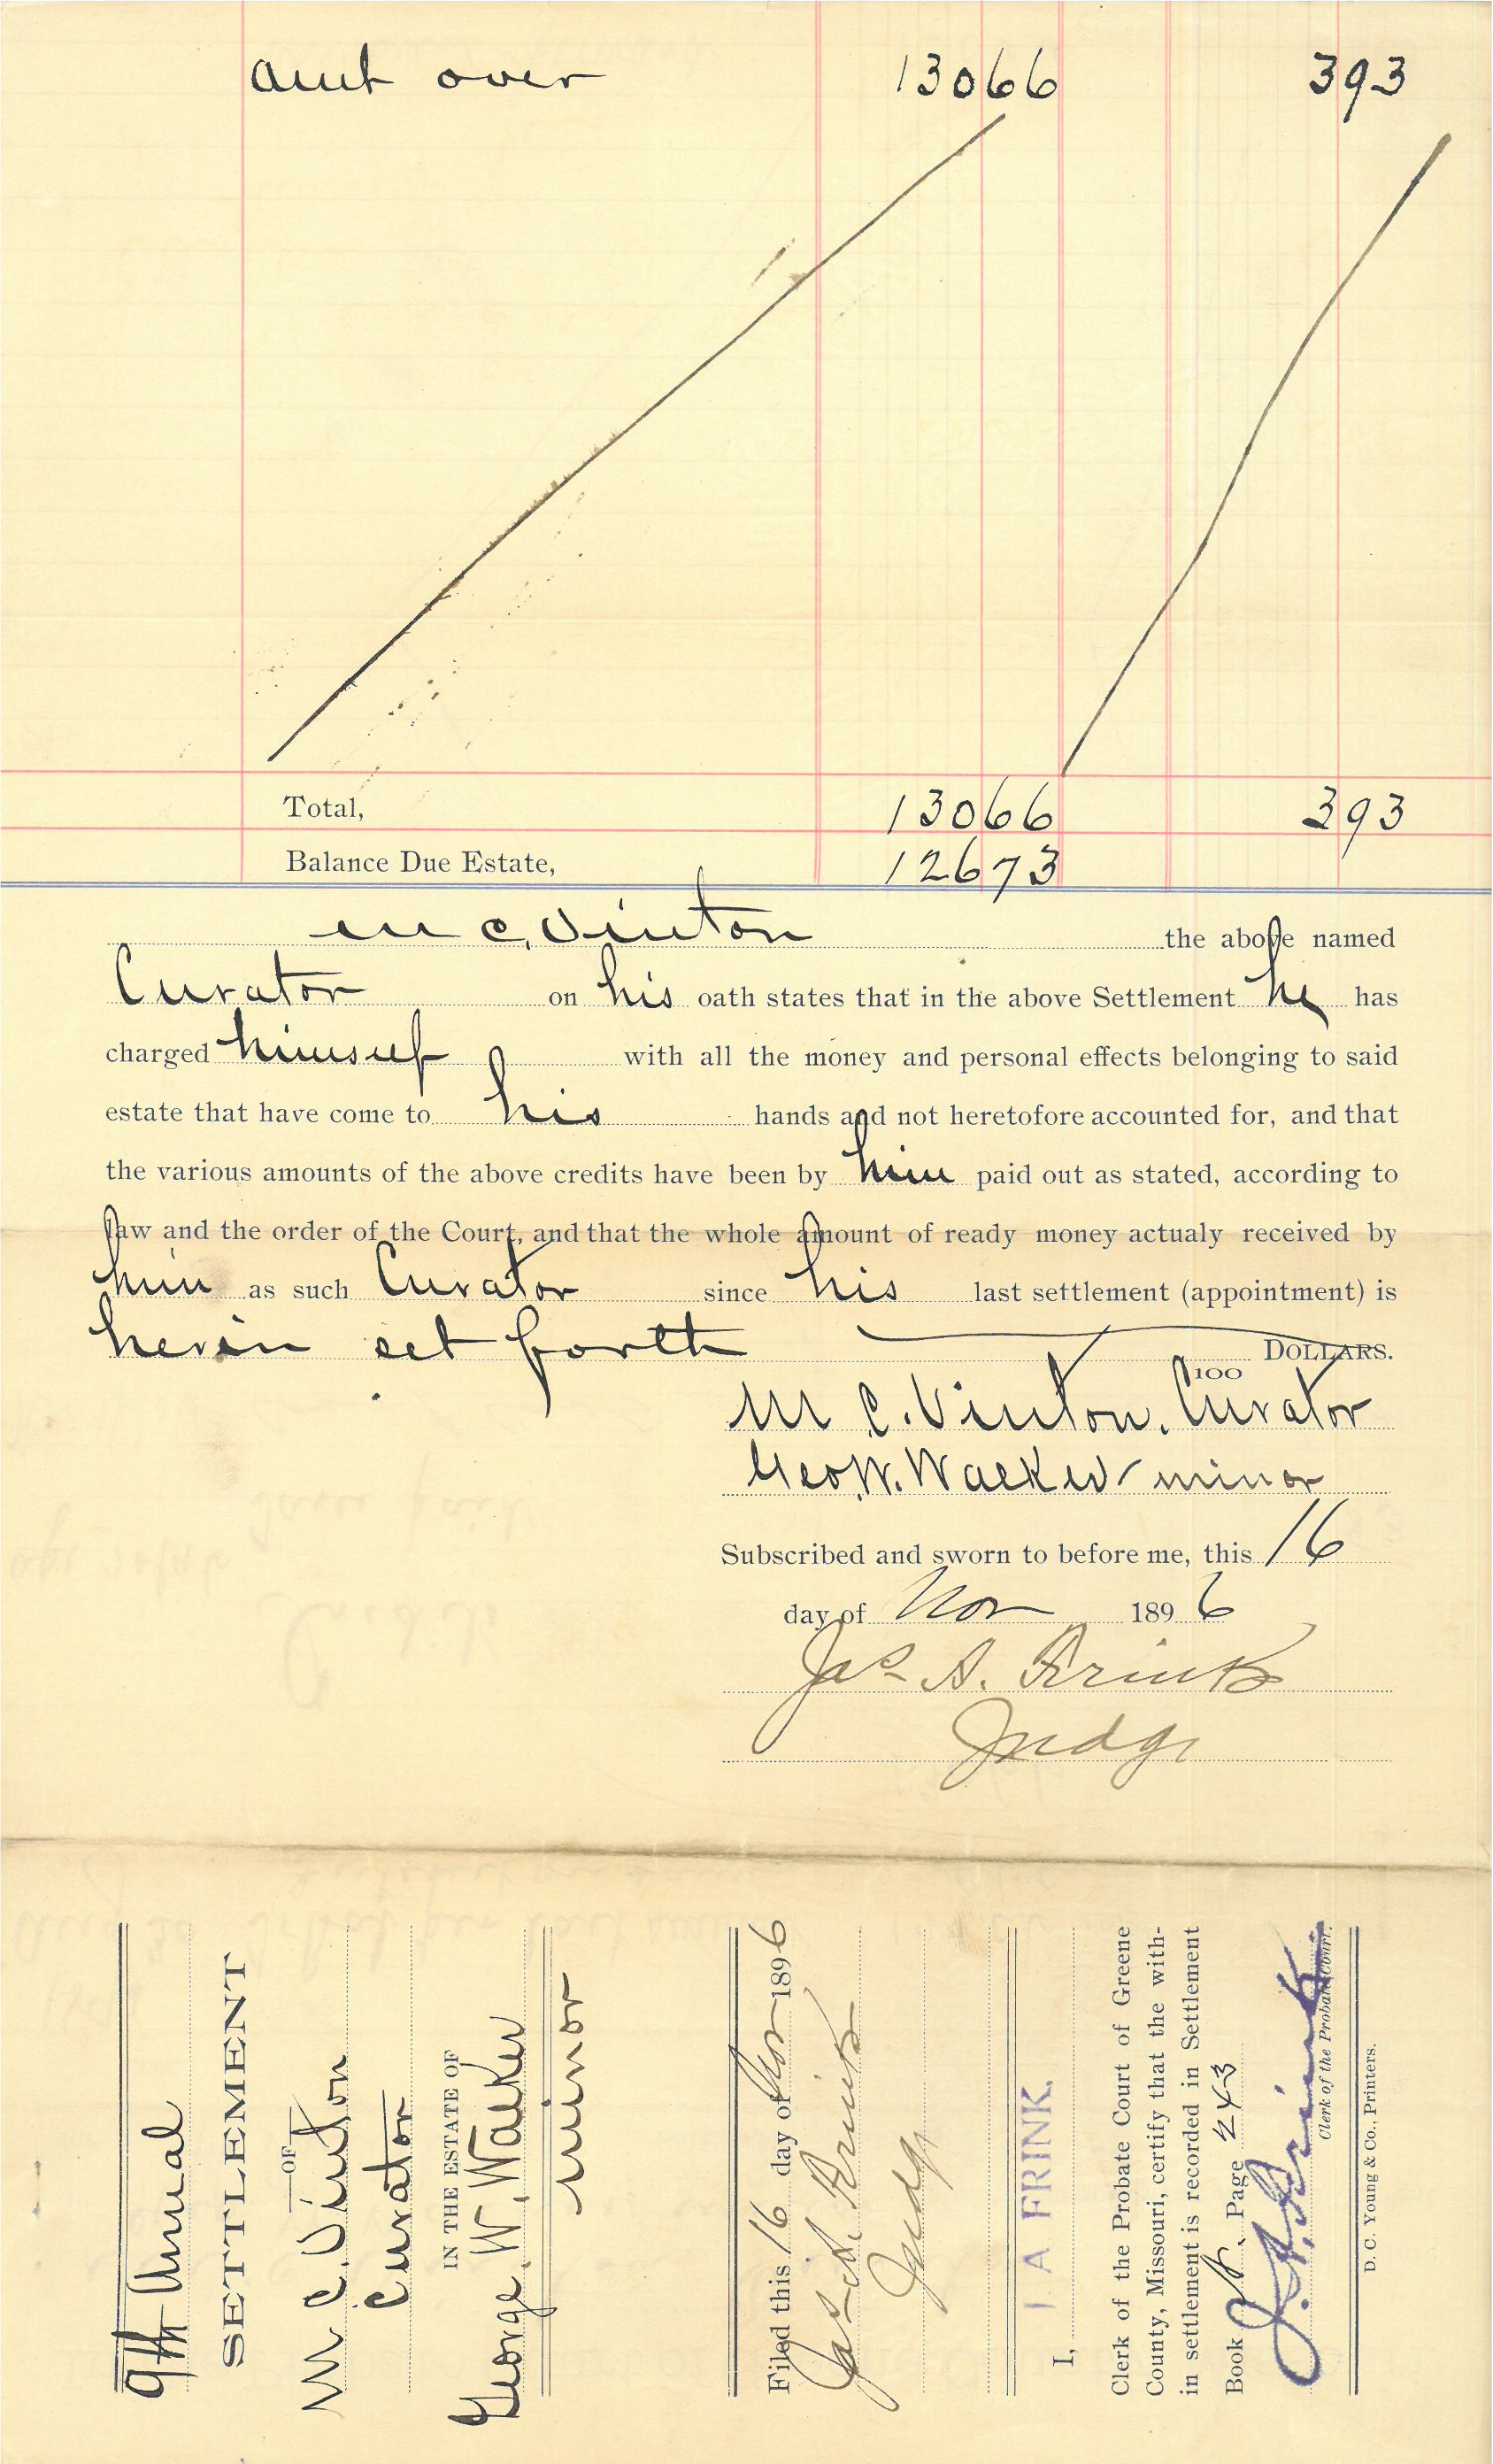 amt over 13066 393
Total, 13066 393
Balance Due Estate, 12673
M C. Vinton the above named
Curator on his oath states that in the above Settlement he has
charged himself with all the money and personal effects belonging to said
estate that have come to his hands and not heretofore accounted for, and that
the various amounts of the above credits have been by him paid out as stated, according to
law and the order of the Court, and that the whole amount of ready money actualy received by
him as such Curator since his last settlement (appointment) is
herein set forth DOLLARS.
100
M C. Vinton, Curator
Geo. W. Walker minor
Subscribed and sworn to before me, this 16
day of Nov 1896
Jas A. Frink
Judge
9th Annual
SETTLEMENT
OF
M C. Vinton
Curator
IN THE ESTATE OF
George. W. Walker
minor
Filed this 16 day of Nov 1896
Jas A. Frink
Judge
I, J A FRINK.
Clerk of the Probate Court of Greene
County, Missouri, certify that the with-
in settlement is recorded in Settlement
Book Page 243
J. A. Frink
Clerk of the Probate Court.
D. C. Young & Co., Printers.